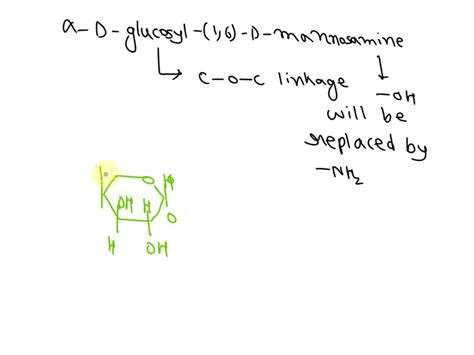 α-D-glucosyl-(1,6)-D-mannosamine
C-O-C linkage
-OH
will be
replaced by
-NH2
O H
OH H O
H OH